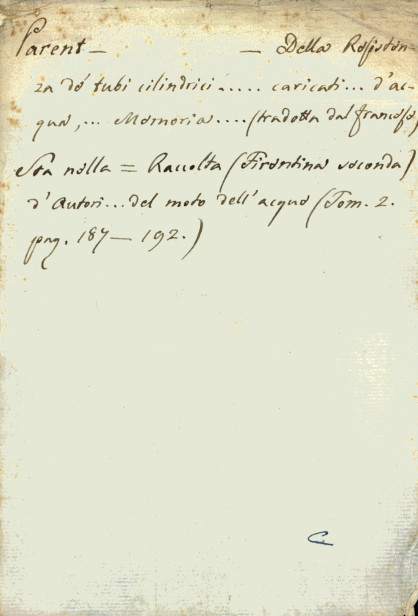 Parent — — Della Resisten-
za de' tubi cilindrici ..... caricati ... d'ac-
qua, ... Memoria .... (tradotta dal francese)
Sta nella = Raccolta (Fiorentina seconda)
d'Autori ... del moto dell'acque (Tom. 2.
pag. 187 — 192.)
C.